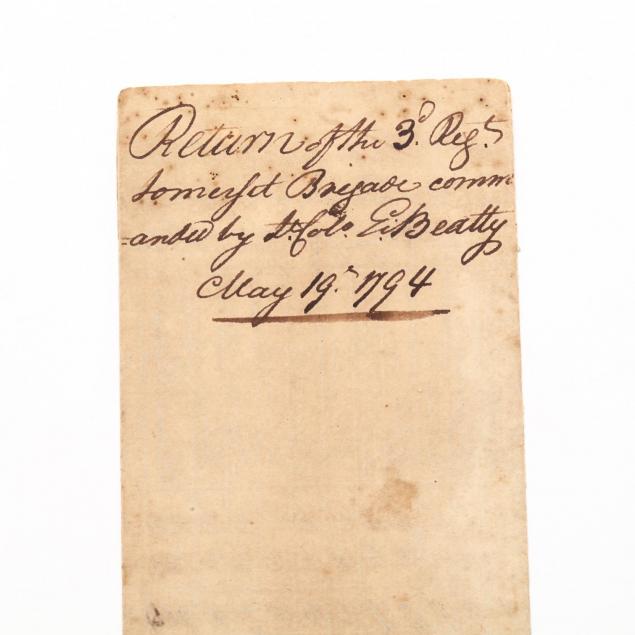 Return of the 3d. Regt.
Somerset Brigade comm
=anded by Lt. Colo. E. Beatty
May 19th 1794